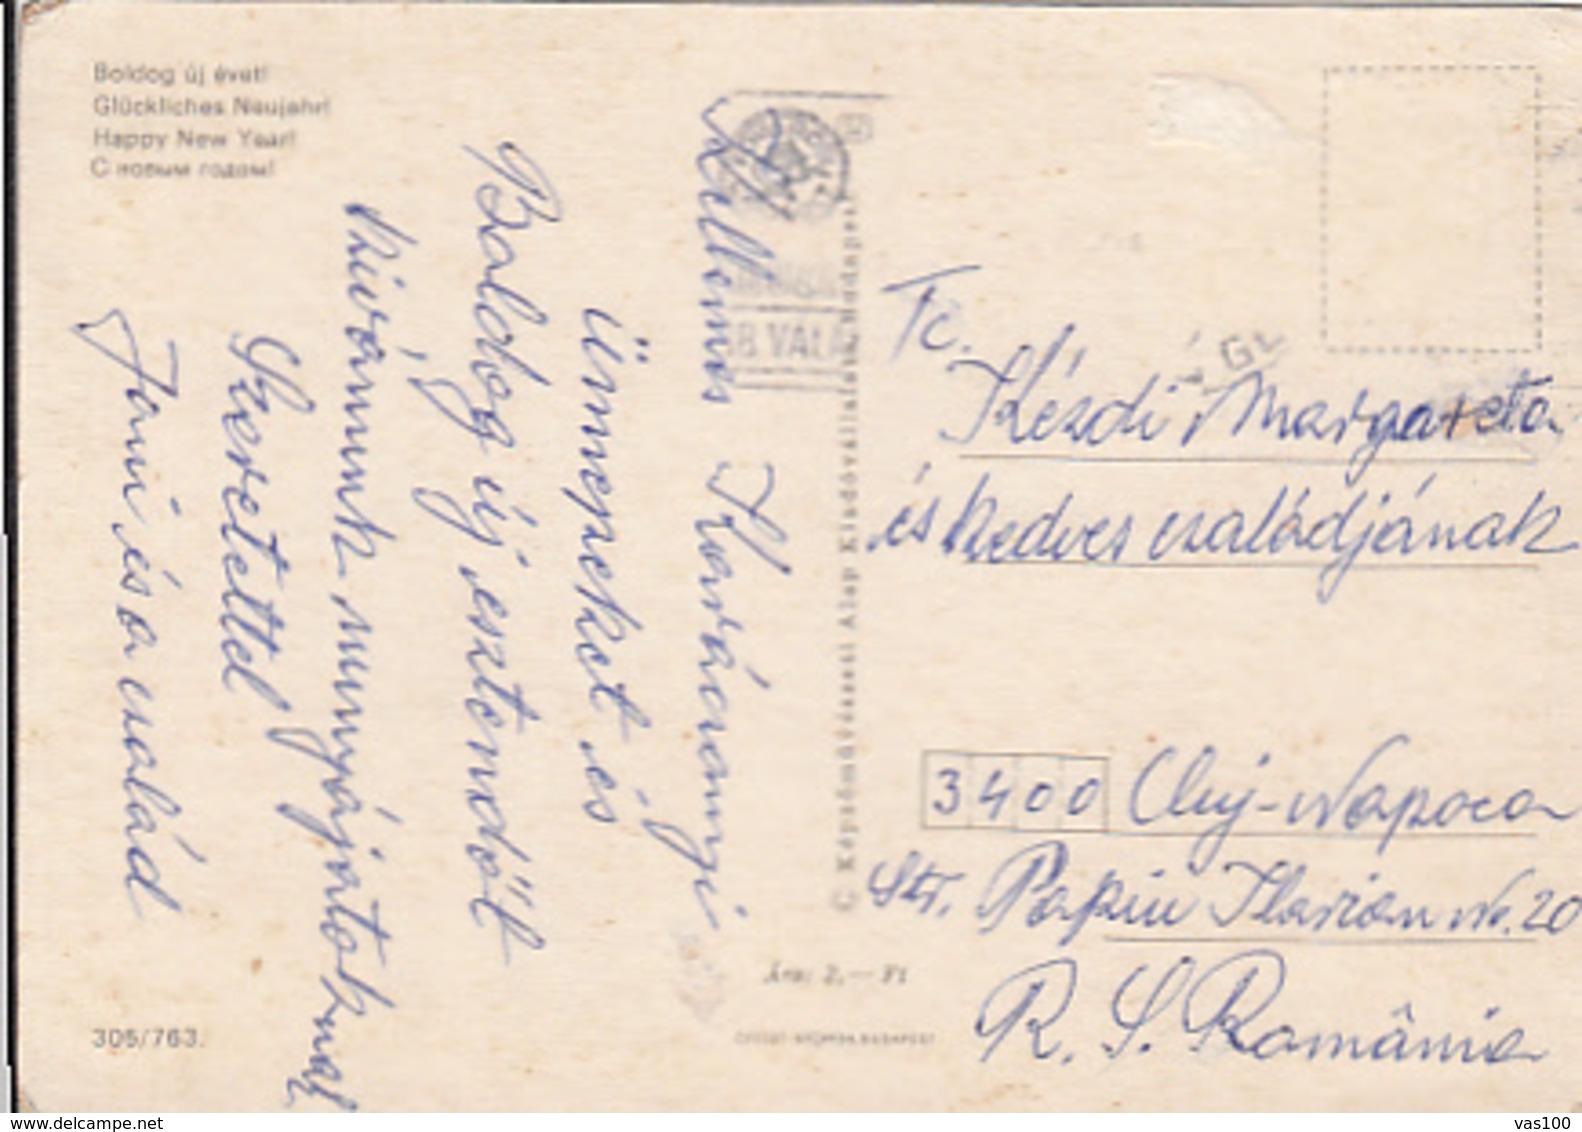 Boldog új évet!
Glückliches Neujahr!
Happy New Year!
С новым годом!
Kellemes Karácsonyi
ünnepeket és
Boldog új esztendőt
kívánunk mnnyájatoknak
Szeretettel
Jani és a család
SB VALA
C Képzőművészeti Alap Kiadóvállalata, Budapest
GL
Fc.
Kézdi Margareta
és kedves családjának
3400 Cluj-Napoca
Str. Papiu Ilarian No. 20
R. S. România
Ára: 2,— Ft
305/763.
OFFSET-NYOMDA, BUDAPEST
www.delcampe.net
vas100